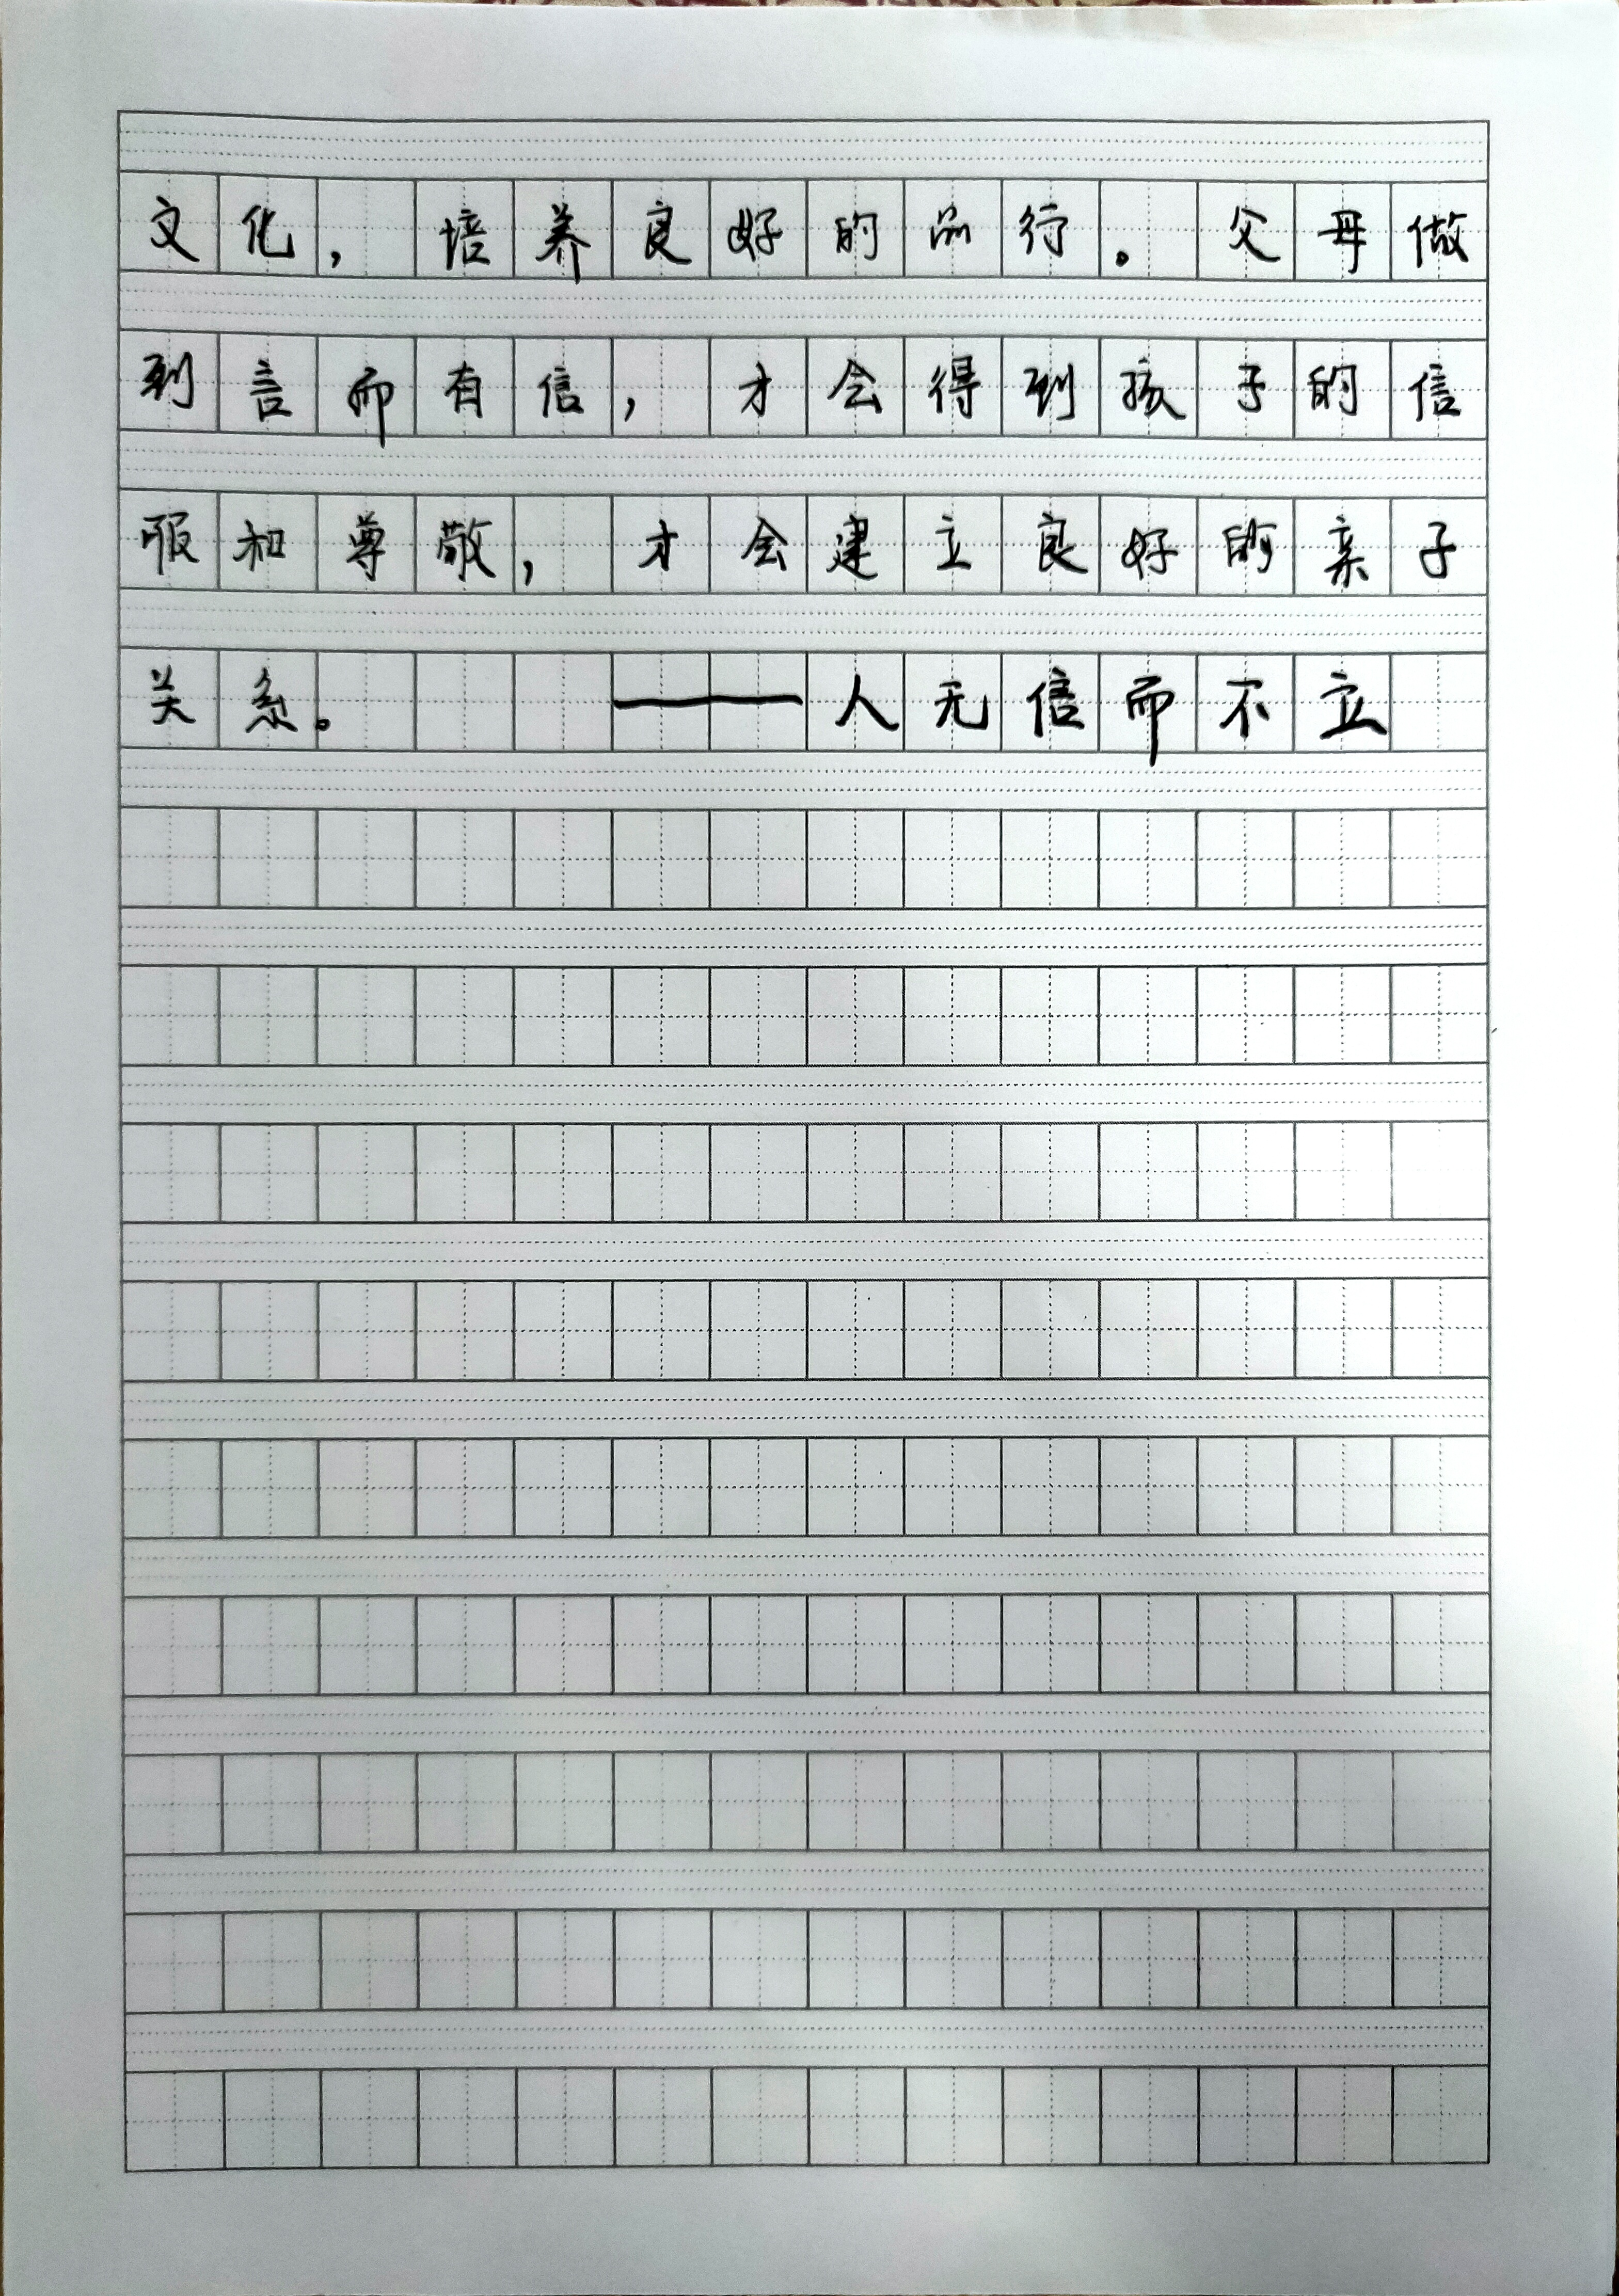 文化，培养良好的品行。父母做
到言而有信，才会得到孩子的信
服和尊敬，才会建立良好的亲子
关系。——人无信而不立